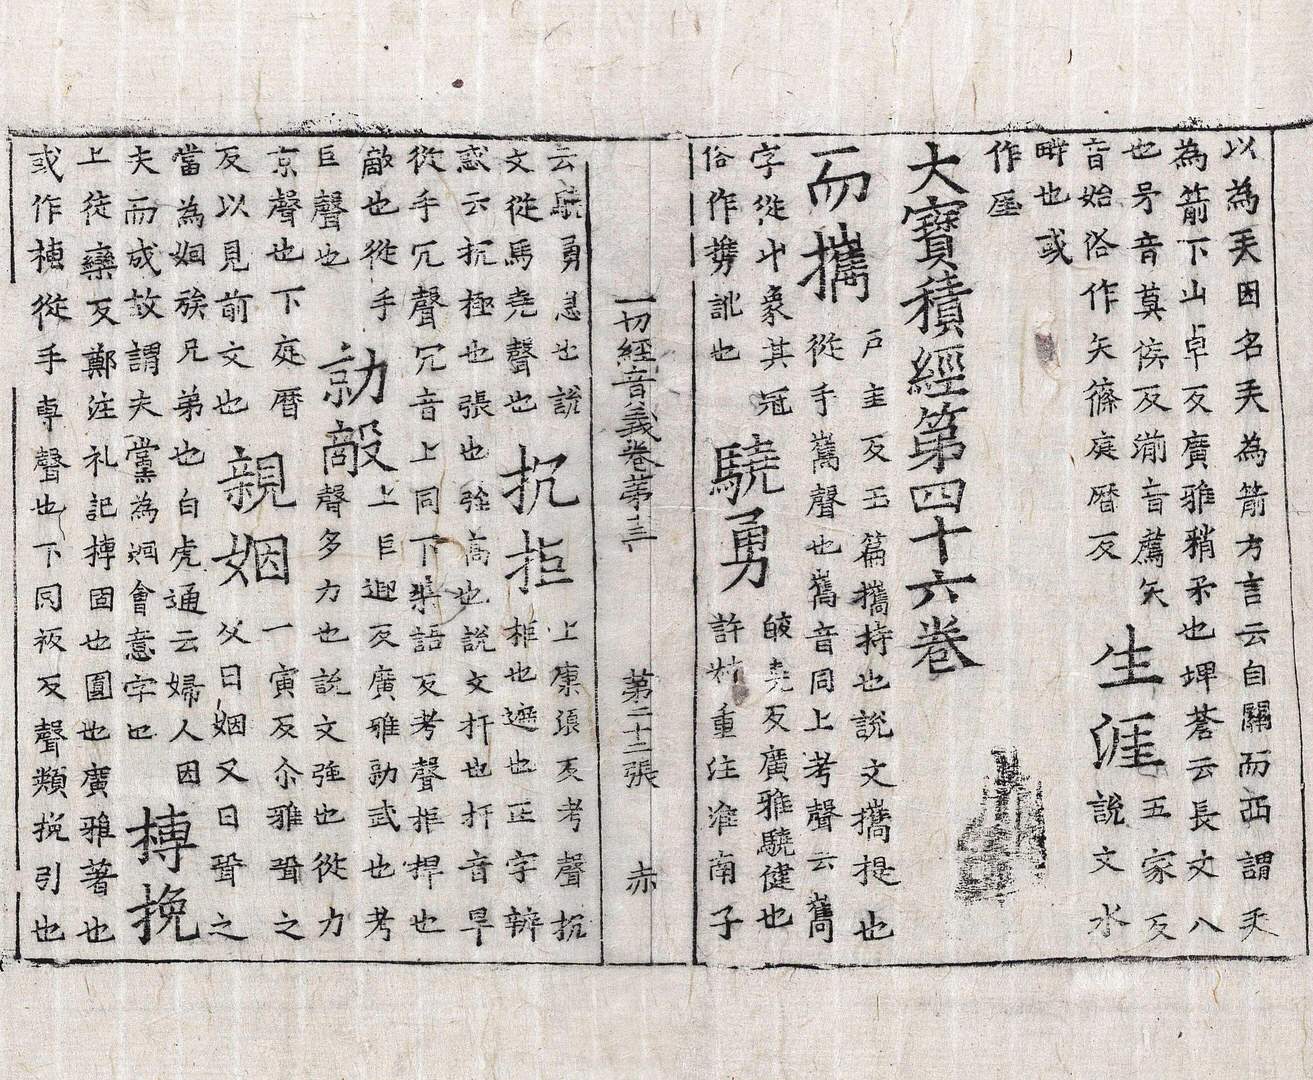 以為矢因名矢為箭方言云自關而西謂矢
為箭下山卓反廣雅矟矛也埤蒼云長丈八
也矛音莫侯反湔音薦矢
音始俗作矢篠庭曆反
生涯
五家反
說文水
畔也或
作厓
大寶積經第四十六卷
而攜
戶圭反玉篇攜持也說文攜提也
從手巂聲也巂音同上考聲云巂
字從屮象其冠
俗作携訛也
驍勇
皎堯反廣雅驍健也
許叔重注淮南子
一切經音義卷第十三 第二十二張 赤
云驍勇急也說
文從馬堯聲也
抗拒
上康浪反考聲抗
拒也遮也正字辨
惑云抗極也張也強高也說文扞也扞音旱
從手冗聲冗音上同下渠語反考聲拒捍也
敵也從手
巨聲也
勍敵
上巨迎反廣雅勍武也考
聲多力也說文強也從力
京聲也下庭曆
反以見前文也
親姻
一寅反尒雅聟之
父曰姻又曰聟之
當為姻族兄弟也白虎通云婦人因
夫而成故謂夫黨為姻會意字也
摶挽
上徒欒反鄭注礼記摶固也圓也廣雅著也
或作槫從手專聲也下同板反聲類挽引也